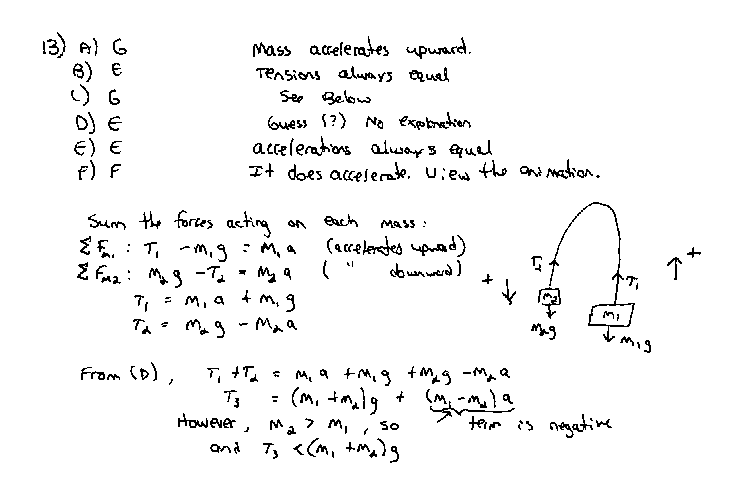 13) A) G Mass accelerates upward.
B) E Tensions always equal
C) G See Below
D) E Guess (?) No explanation
E) E accelerations always equal
F) F It does accelerate. View the animation.
Sum the forces acting on each mass:
ΣFm₁: T₁ - m₁g = m₁a (accelerates upward)
ΣFm₂: m₂g - T₂ = m₂a ( " downward)
T₁ = m₁a + m₁g
T₂ = m₂g - m₂a
T₂ T₁ + ↓ ↑ +
m₂ m₁
m₂g m₁g
From (D), T₁ + T₂ = m₁a + m₁g + m₂g - m₂a
T₃ = (m₁ + m₂)g + (m₁ - m₂)a
However, m₂ > m₁, so term is negative
and T₃ < (m₁ + m₂)g